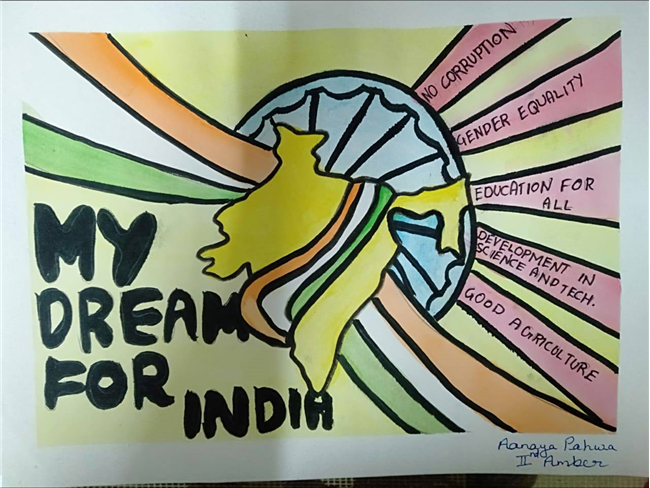 MY
DREAM
FOR
INDIA
NO CORRUPTION
GENDER EQUALITY
EDUCATION FOR
ALL
DEVELOPMENT IN
SCIENCE AND TECH.
GOOD AGRICULTURE
Aangya Pahwa
IInd Amber